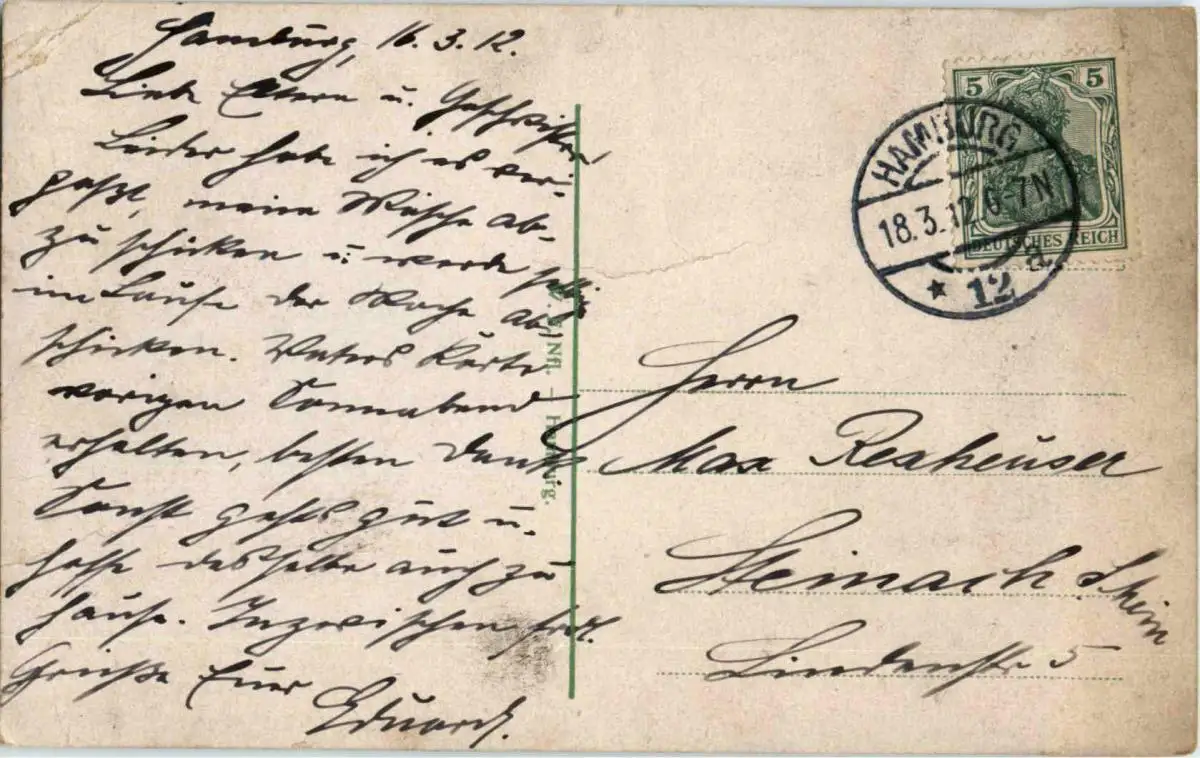 Hamburg, 16.3.12.
Liebe Eltern u. Geschwister,
Leider habe ich es ver-
geßt, meine Wäsche ab-
zu schicken u. werde selbige
im Laufe der Woche ab-
schicken. Vaters Karte
vorigen Sonnabend
erhalten, besten Dank.
Sonst gehts gut u.
hoffe dasselbe auch zu
hause. Inzwischen frdl.
Grüße Euer
Eduard.
5 5
DEUTSCHES REICH
HAMBURG
18.3.12.6-7N
* 12 d
Herrn
Max Rexheuser
Steinach
Lindenstr. 5
Nfl. — Hamburg.